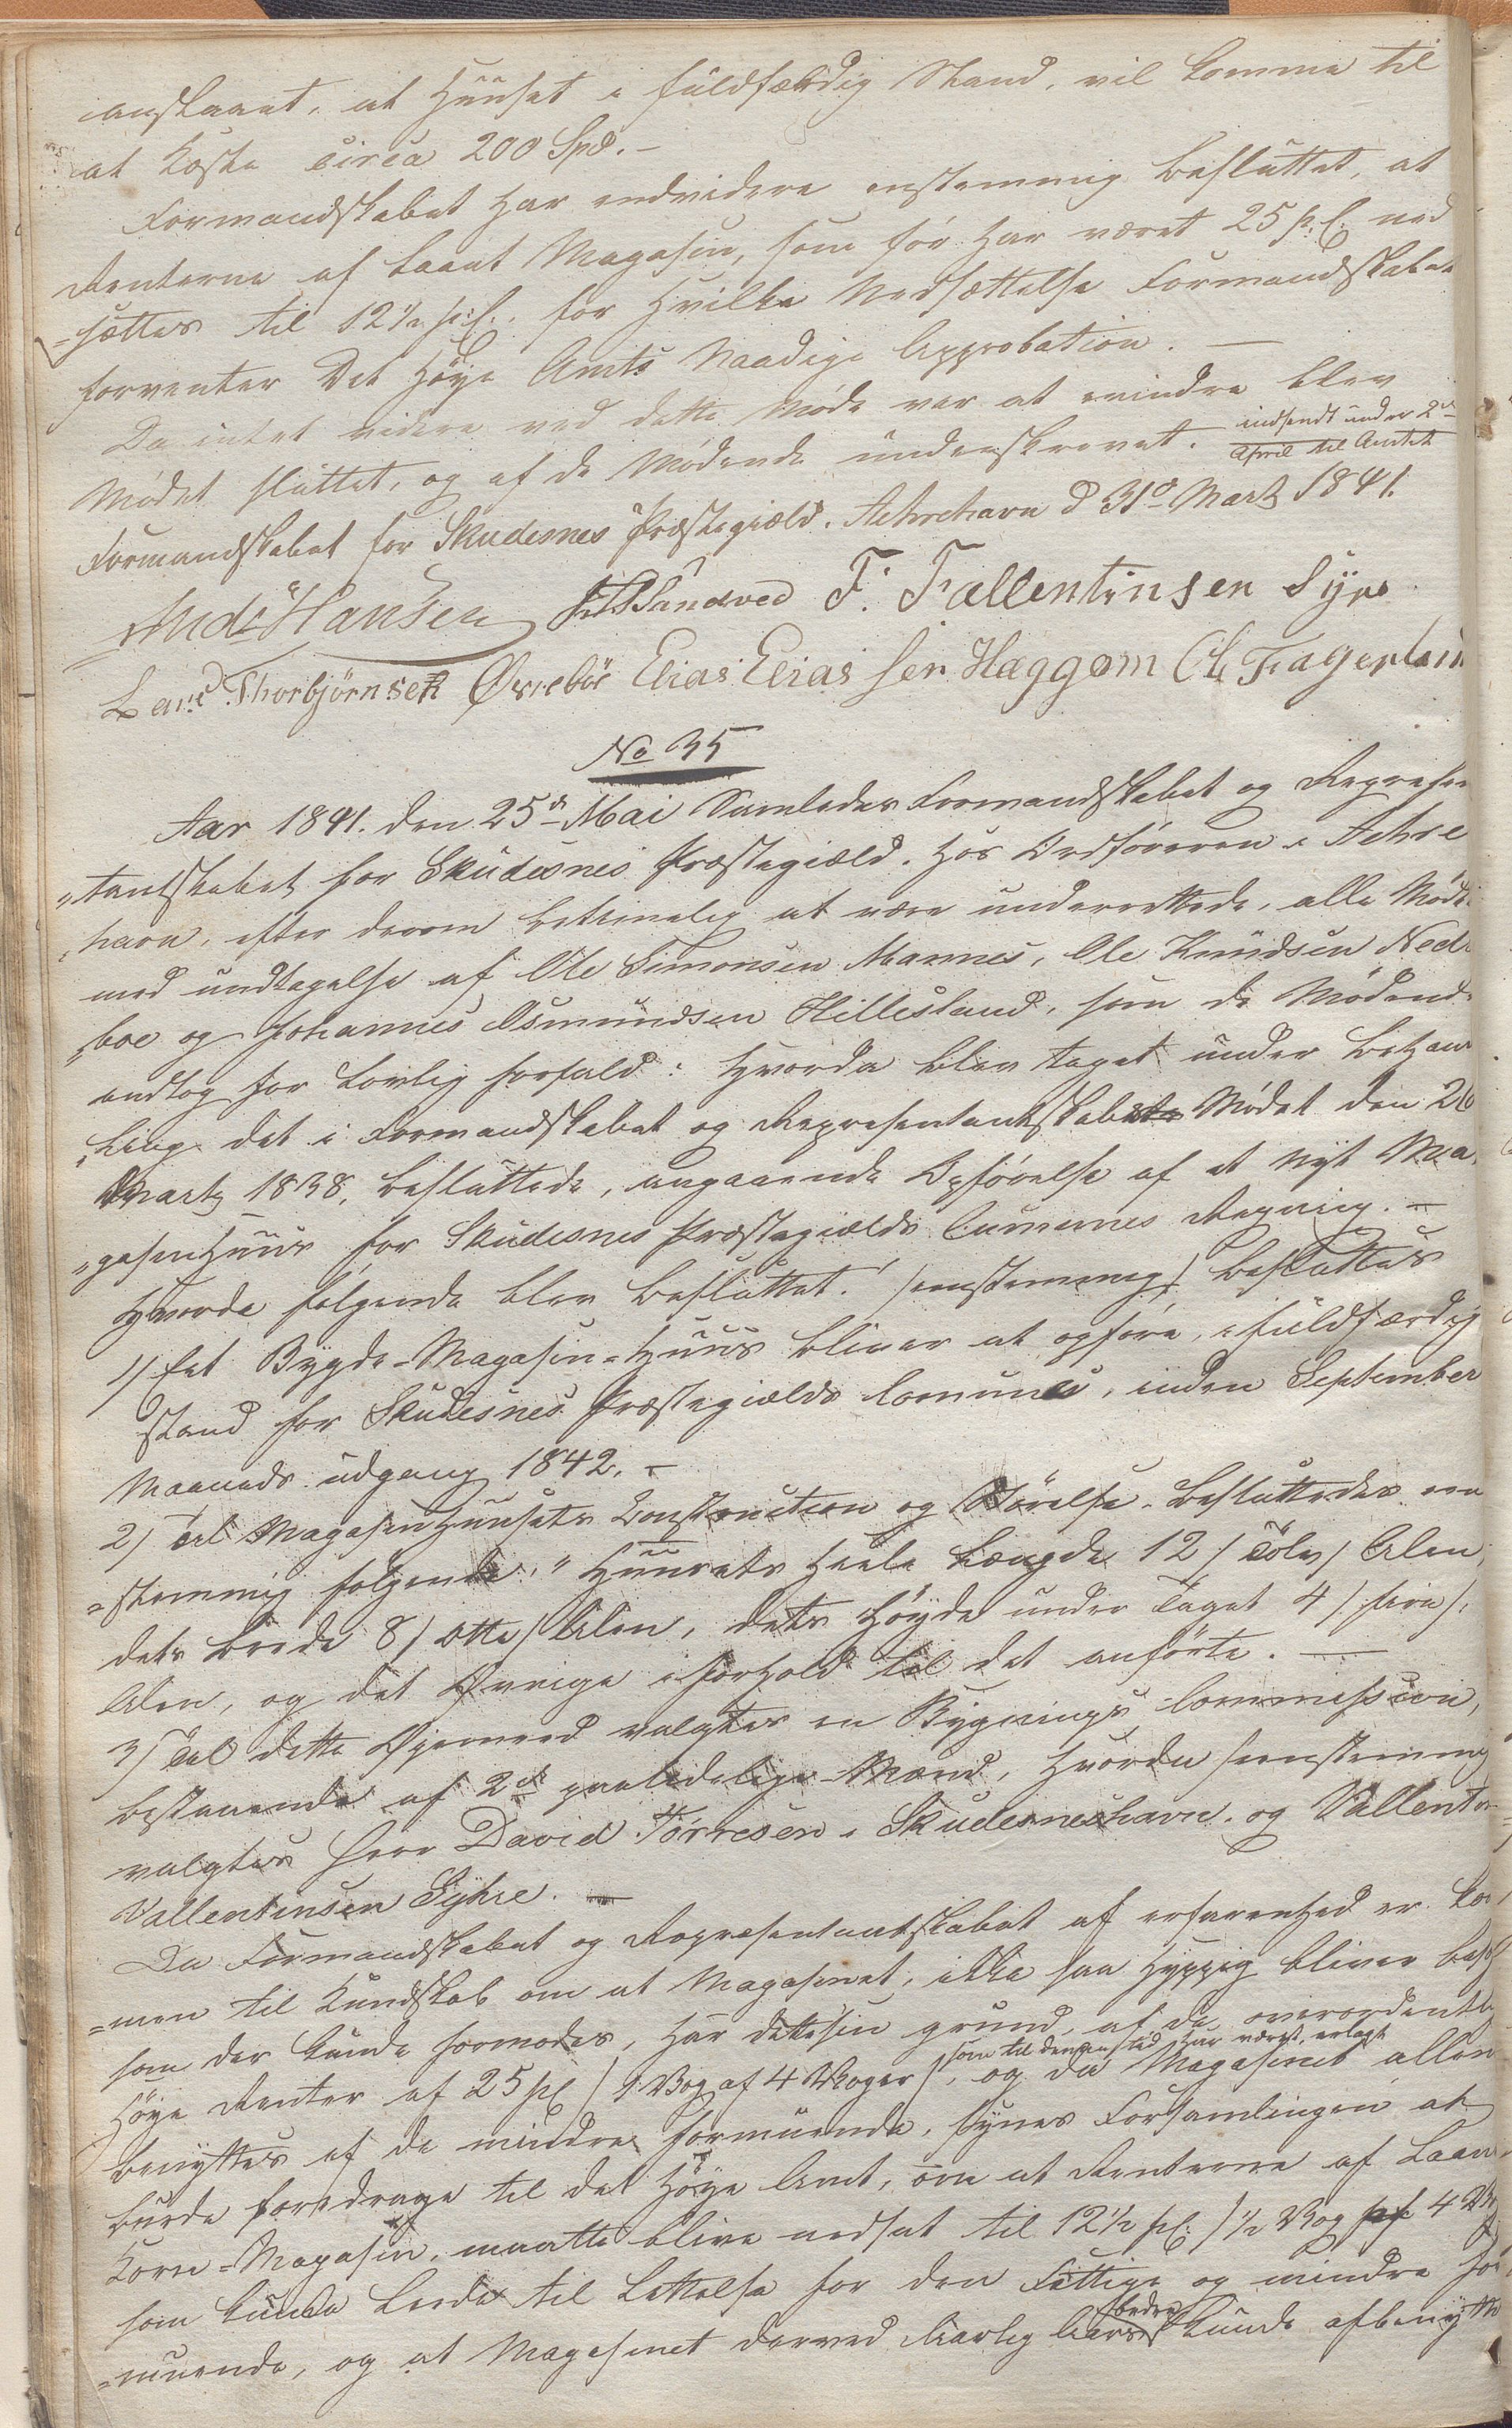 anslaaet, at Huuset i fuldfærdig Stand, vil komme til
at koste circa 200 Spd. –
Formandskabet har endvidere enstemmig besluttet, at
Renterne af Laant Magasin, som før har været 25 p.C. ned
=sættes til 12½ p:C., for hvilke Nedsættelse Formandskabet
forventer Det Høye Amts Naadige Approbation. —
Da intet videre ved dette Møde var at erindre blev
Mødet sluttet, og af de Mødende underskrevet. indsendt under 2de
April til Amtet
Formandskabet for Skudesnes Præstegiæld. Aakrehavn d 31te Marts 1841.
Hansen Sandved F. Fallentinsen Syre
Lars Thorbjørnsen Østrebø Elias Eliassen Hæggom Ol. Fagerland
No 35
Aar 1841. den 25de Mai Samledes Formandskabet og Represen
"tantskabet for Skudesnes Præstegiæld. hos Ordføreren i Aakre
"havn, efter derom betimelig at være underrettede, alle Mødte
med undtagelse af Ole Simonsen Mannes, Ole Knudsen Nedr
"boe og Johannes Osmundsen Hillesland, som de Mødende
andtog for Lovlig forfald: hvorda blev taget under behand
"ling det i Formandskabet og Representantskabets Mødet den 26
Marts 1838, besluttede, angaaende Opførelse af et Nyt Ma
"gasinhuus for Skudesnes Præstegiælds Comunes Regning. –
Hvorda følgende blev besluttet! (enstemmig) besluttes
1) Eet Bygde-Magasin-Huus bliver at opføre, i fuldfærdig
stand for Skudesnes Præstegiælds Comunes, inden September
Maaneds udgang 1842. –
2) Til Magasinhuusets Construction og Størelse. besluttedes een
=stemmig følgende: " Huusets Heele Længde 12 (Tolv) Alen,
dets Brede 8 (otte) Alen, dets Høyde under Taget 4 (fire)
Alen, og det Øvrige i forhold til det anførte. —
3) Til dette Øyemeed valgtes en Bygnings Commission,
bestaaende af 2de paalidelige Mænd, hvorda (eenstemmig
valgtes Herr David Tørresen i Skudesneshavn. og Vallentin
Vallentinsen Syhre. —
Da Formandskabet og Repræsentantskabet af erfarenhed er kom
=men til kundskab om at Magasinet, ikke saa hyppig bliver besøgt
som der kunde formodes, har dette sin grund, af de overordentlig
som til denne sted har været erlagt
Høye Renter af 25 p.C. (1 Vog af 4 Voger), og da Magasinet allene
benyttes af de mindre formuende, synes Forsamlingen at
burde foredrage til det Høye Amt, om at Renterne af Laan
Korn-Magasin, maatte blive nedsat til 12½ p.C. (½ Vog af 4 Vo
som kunde Leede til Lettelse for den Fattige og mindre for
bedre
=muende, og at Magasinet derved Aarlig kunde afbenytte